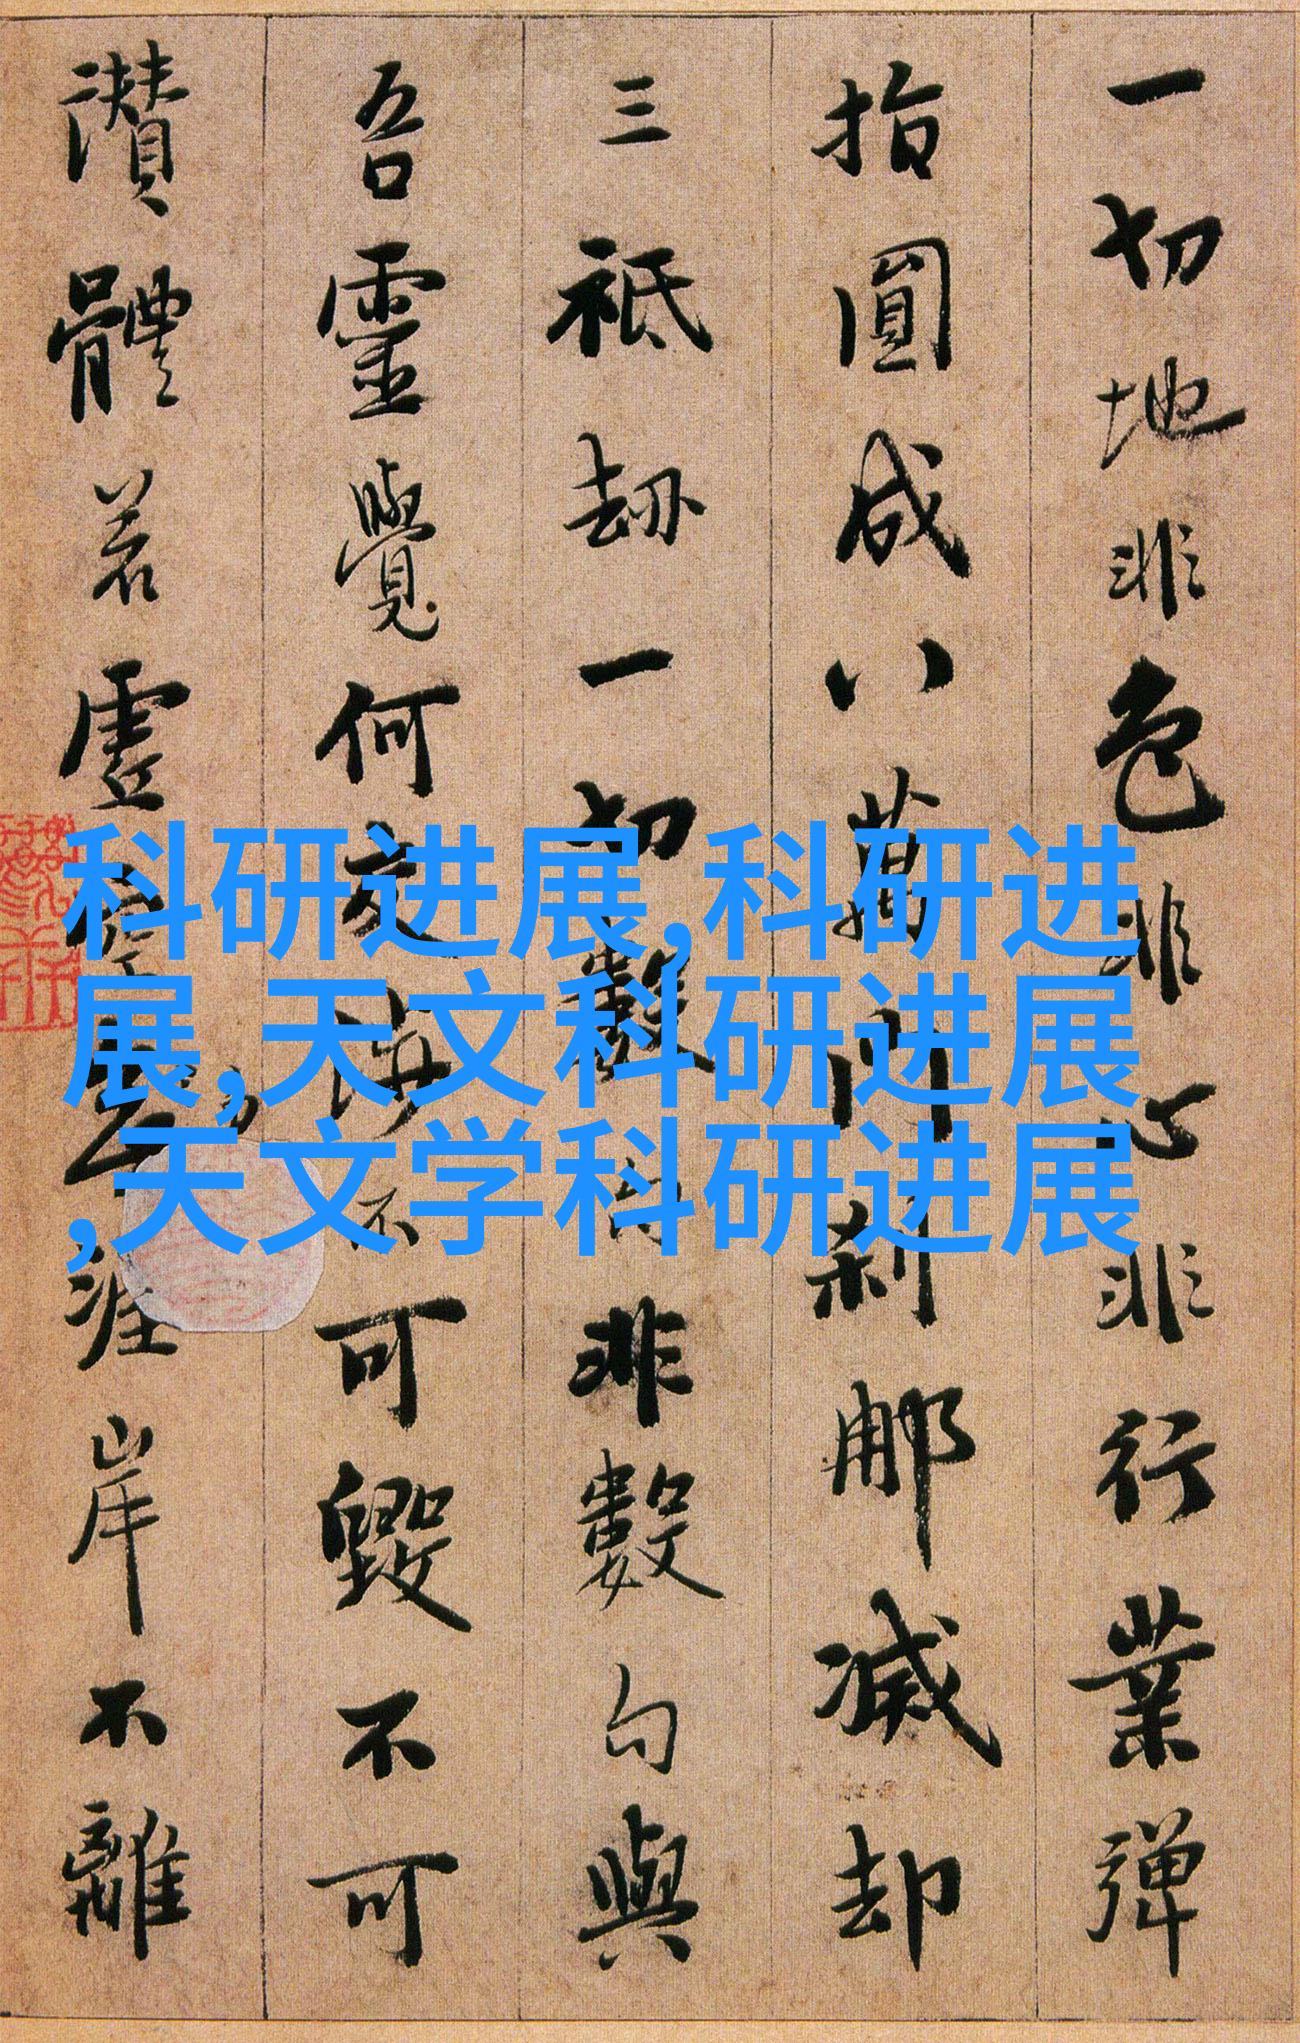 一切地非色非心非行業彈
指圓成八萬門刹那滅却
三祇劫一切數句非數句與
吾靈覺何交涉不可毀不可
讚體若虛空涯岸不離
科研进展,科研进
展,天文科研进展
,天文学科研进展